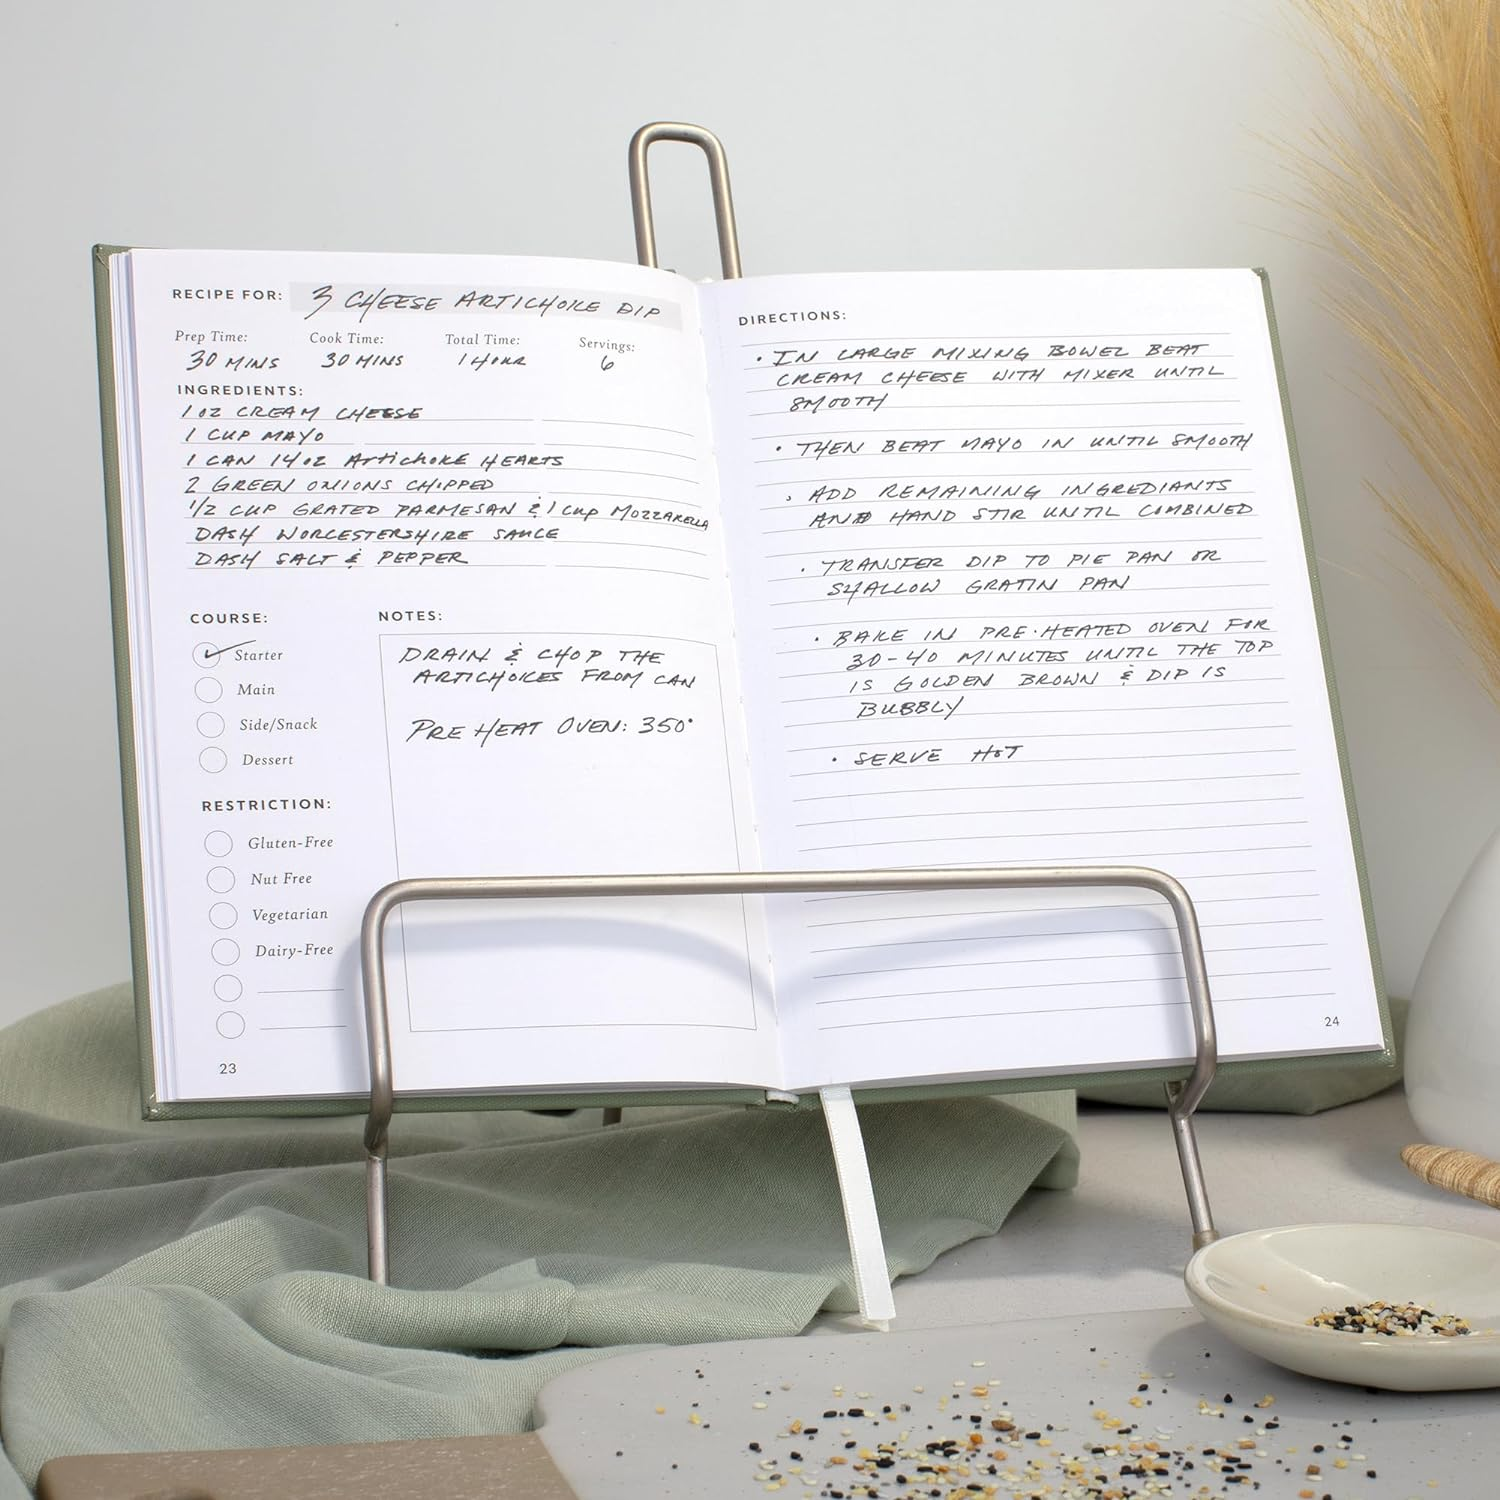 RECIPE FOR: 3 CHEESE ARTICHOKE DIP
Prep Time: Cook Time: Total Time: Servings:
30 MINS 30 MINS 1 HOUR 6
INGREDIENTS:
1 OZ CREAM CHEESE
1 CUP MAYO
1 CAN 14 OZ ARTICHOKE HEARTS
2 GREEN ONIONS CHIPPED
1/2 CUP GRATED PARMESAN & 1 CUP MOZZARELLA
DASH WORCESTERSHIRE SAUCE
DASH SALT & PEPPER
COURSE:
Starter
Main
Side/Snack
Dessert
RESTRICTION:
Gluten-Free
Nut Free
Vegetarian
Dairy-Free
NOTES:
DRAIN & CHOP THE
ARTICHOKES FROM CAN
PRE HEAT OVEN: 350°
23
DIRECTIONS:
• IN LARGE MIXING BOWEL BEAT
CREAM CHEESE WITH MIXER UNTIL
SMOOTH
• THEN BEAT MAYO IN UNTIL SMOOTH
• ADD REMAINING INGREDIANTS
AND HAND STIR UNTIL COMBINED
• TRANSFER DIP TO PIE PAN OR
SHALLOW GRATIN PAN
• BAKE IN PRE-HEATED OVEN FOR
30-40 MINUTES UNTIL THE TOP
IS GOLDEN BROWN & DIP IS
BUBBLY
• SERVE HOT
24